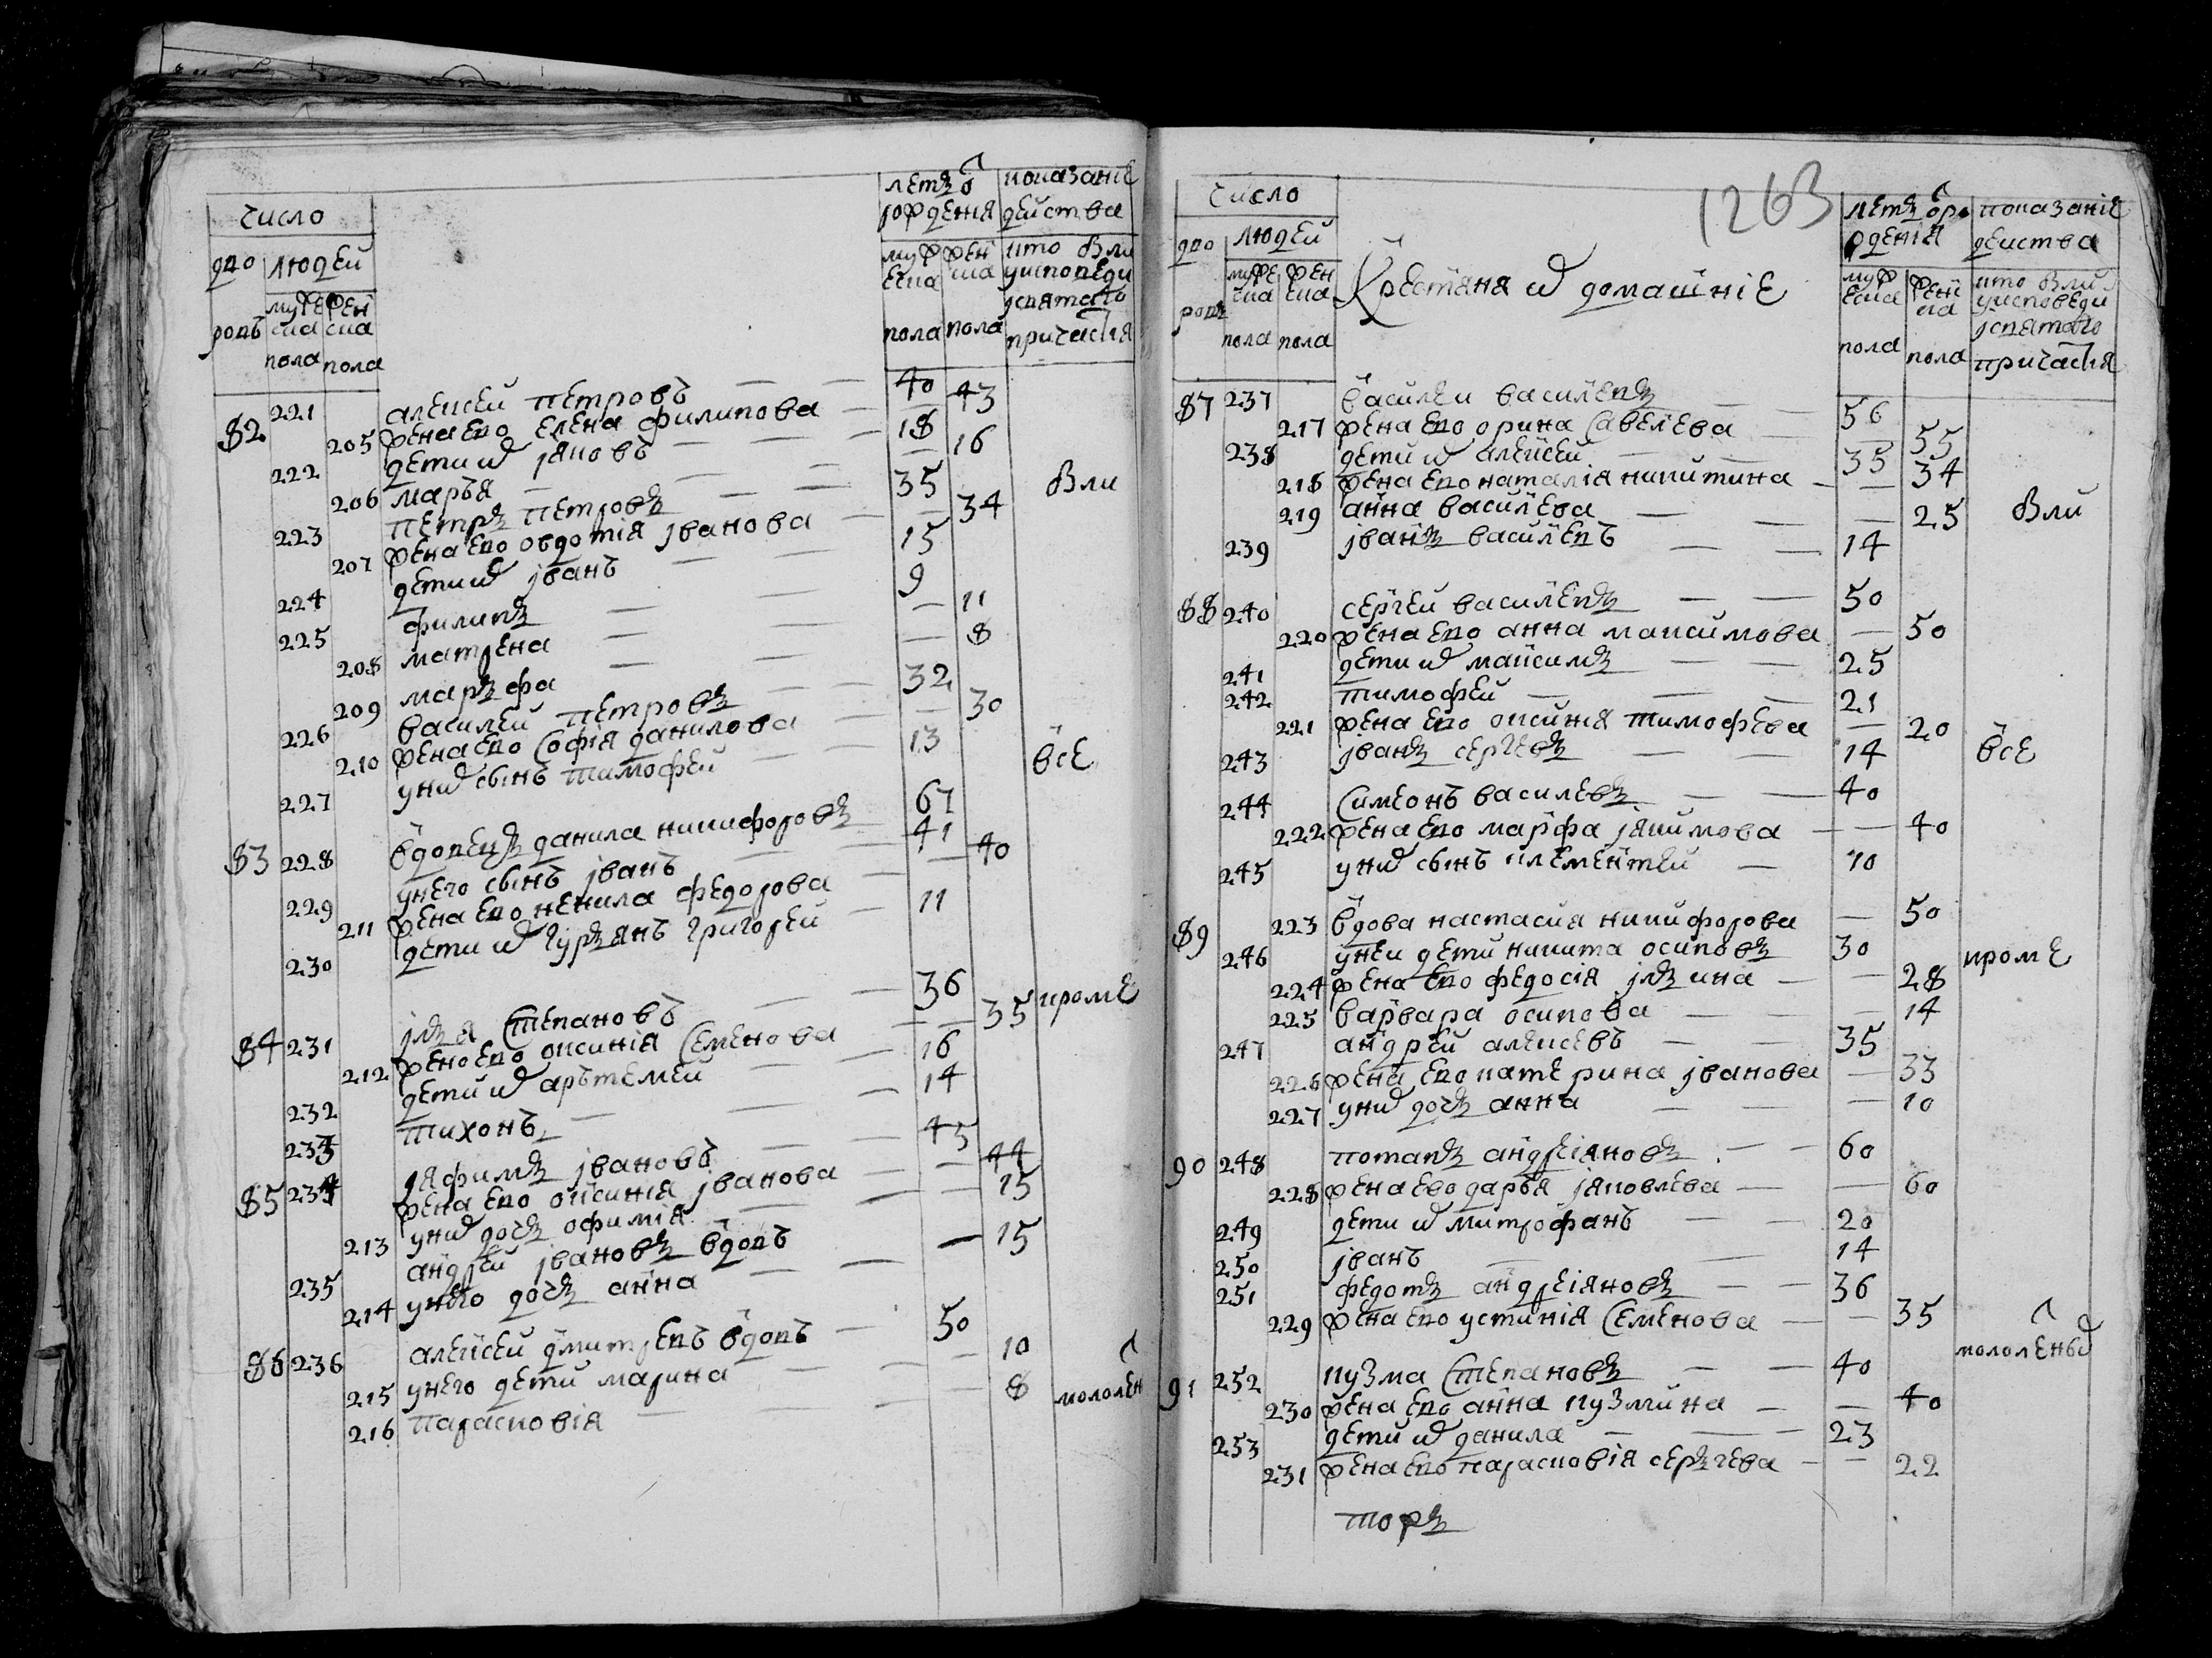 число
летъ ѿ рожденїя
показанїе действа
дворовъ
людей
мужеска пола
женска пола
мужеска пола
женска пола
кто были у исповеди и святаго причастия
82 221 алексей петровъ — — 40
205 жена ево елена филипова — — 43
222 дети их яковъ — — 18
206 марья — — — 16
223 петръ петровъ — — 35
207 жена ево овдотїя иванова — — 34
224 дети их иванъ — — 15
225 филипъ — — 9
208 матрена — — — 11
209 маръфа — — — 8
были
226 василей петровъ — — 32
210 жена ево софїя данилова — — 30
227 у них сынъ тимофей — — 13
все
83 228 вдовецъ данила никифоровъ 67
229 у него сынъ иванъ — — 41
211 жена ево ненила федорова — — 40
230 дети их гурьянъ григорей — 11
84 231 илья степановъ — — 36
212 жена ево оксинїя семенова — — 35
кроме
232 дети их артемей — — 16
233 тихонъ — — 14
85 234 яфимъ ивановъ — — 45
жена ево оксинїя иванова — — 44
213 у них дочь офимїя — — 15
235 андрей ивановъ вдовъ
214 у него дочь анна — — — 15
86 236 алексей дмитревъ вдовъ — 50
215 у него дети марина — — 10
216 парасковїя — — — 8
малолетн
1263
число
дворовъ
людей
мужеска пола
женска пола
Крестьяня их домашнїе
летъ ѿ рожденїя
мужеска пола
женска пола
показанїе действа
кто были у исповеди и святаго причастия
87 237 василеи василевъ — — 56
217 жена ево орина савелева — — 55
238 дети их алексей — — 35
218 жена ево наталїя никитина — — 34
219 анна василева — — — 25
были
239 иванъ василевъ — — 14
88 240 сергеи василевъ — — 50
220 жена ево анна максимова — 50
241 дети их максимъ — — 25
242 тимофей — — — 21
221 жена ево оксиния тимофева — 20
все
243 иванъ сергевъ — — 14
244 симеонъ василевъ — — 40
222 жена ево марфа якимова — — 40
245 у них сынъ клементей — 10
89 223 вдова настасия никифорова — 50
246 у неи дети никита осиповъ 30
кроме
224 жена ево федосїя ильина — — 28
225 варвара осипова — — — 14
247 андрей алексевъ — — 35
226 жена ево катерина иванова — 33
227 у них дочь анна — — — 10
90 248 потапъ андреїяновъ — — 60
228 жена ево дарья яковлева — — 60
249 дети их митрофанъ — — 20
250 иванъ — — 14
251 федотъ андреїяновъ — — 36
229 жена ево устинїя семенова — — 35
малолетных
91 252 кузма степановъ — — 40
230 жена ево анна кузмина — — 40
253 дети их данила — — 23
231 жена ево парасковїя серьгева — — 22